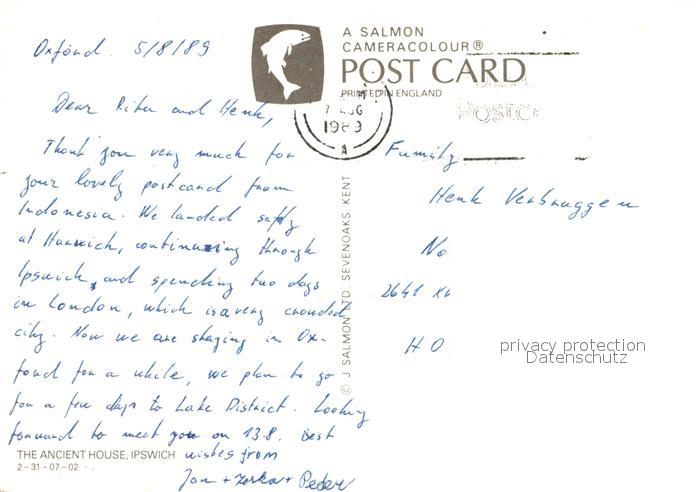 A SALMON
CAMERACOLOUR®
POST CARD
PRINTED IN ENGLAND
Oxford. 5/8/89
Dear Rita and Henk,
Thank you very much for
your lovely postcard from
Indonesia. We landed safly
at Harwich, continuing through
Ipswich, and spending two days
in London, which is a very crowded
city. Now we are staying in Ox-
ford for a while, we plan to go
for a few days to Lake District. Looking
forward to meet you on 13.8. Best
wishes from
Jan + Zorka + Peder
THE ANCIENT HOUSE, IPSWICH
2-31-07-02
© J SALMON LTD., SEVENOAKS, KENT
1989
A
POSTC
Family
Henk Verbruggen
No
2641 XV
HO
privacy protection
Datenschutz